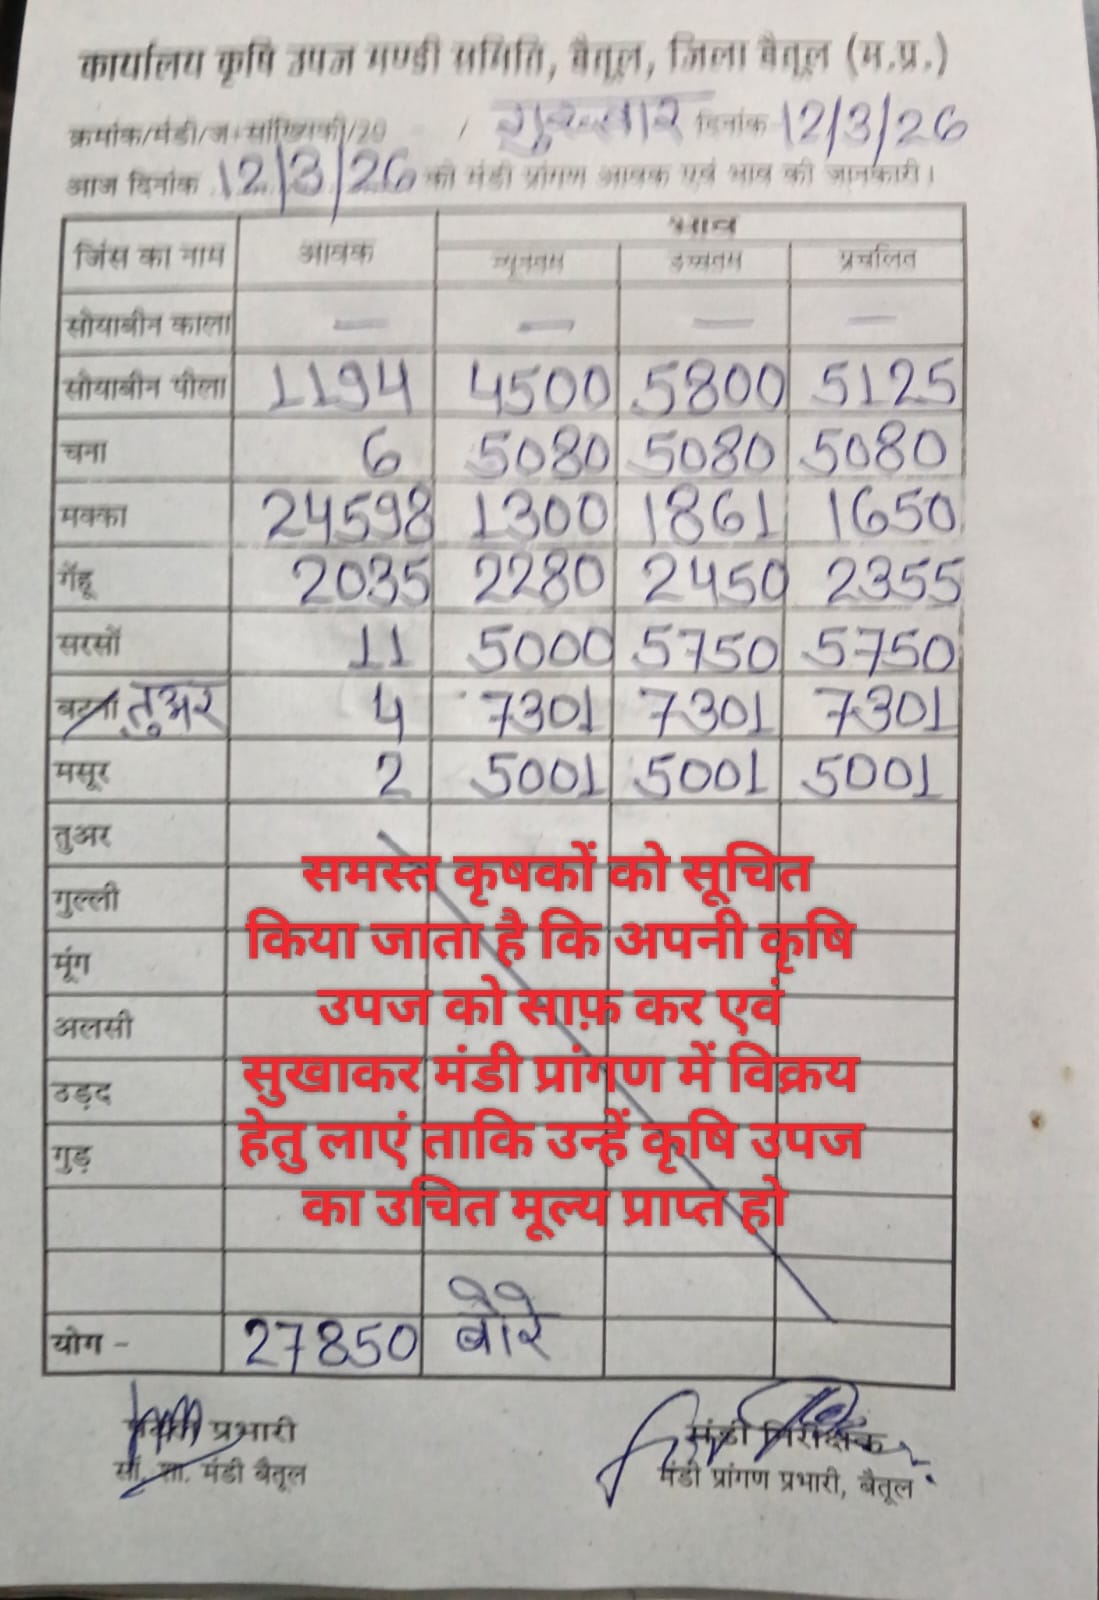 कार्यालय कृषि उपज मण्डी समिति, बैतूल, जिला बैतूल (म.प्र.)
क्रमांक/मंडी/ज.सांख्यिकी/20 / गुरुवार दिनांक 12/3/26
आज दिनांक 12/3/26 को मंडी प्रांगण आवक एवं भाव की जानकारी।
जिंस का नाम आवक भाव
न्यूनतम उच्चतम प्रचलित
सोयाबीन काला — — — —
सोयाबीन पीला 1194 4500 5800 5125
चना 6 5080 5080 5080
मक्का 24598 1300 1861 1650
गेंहू 2035 2280 2450 2355
सरसों 11 5000 5750 5750
बटना तुअर 4 7301 7301 7301
मसूर 2 5001 5001 5001
तुअर
गुल्ली
मूंग
अलसी
उड़द
गुड़
समस्त कृषकों को सूचित
किया जाता है कि अपनी कृषि
उपज को साफ़ कर एवं
सुखाकर मंडी प्रांगण में विक्रय
हेतु लाएं ताकि उन्हें कृषि उपज
का उचित मूल्य प्राप्त हो
योग - 27850 बोरे
प्रभारी
मंडी निरीक्षक
मंडी बैतूल
मंडी प्रांगण प्रभारी, बैतूल